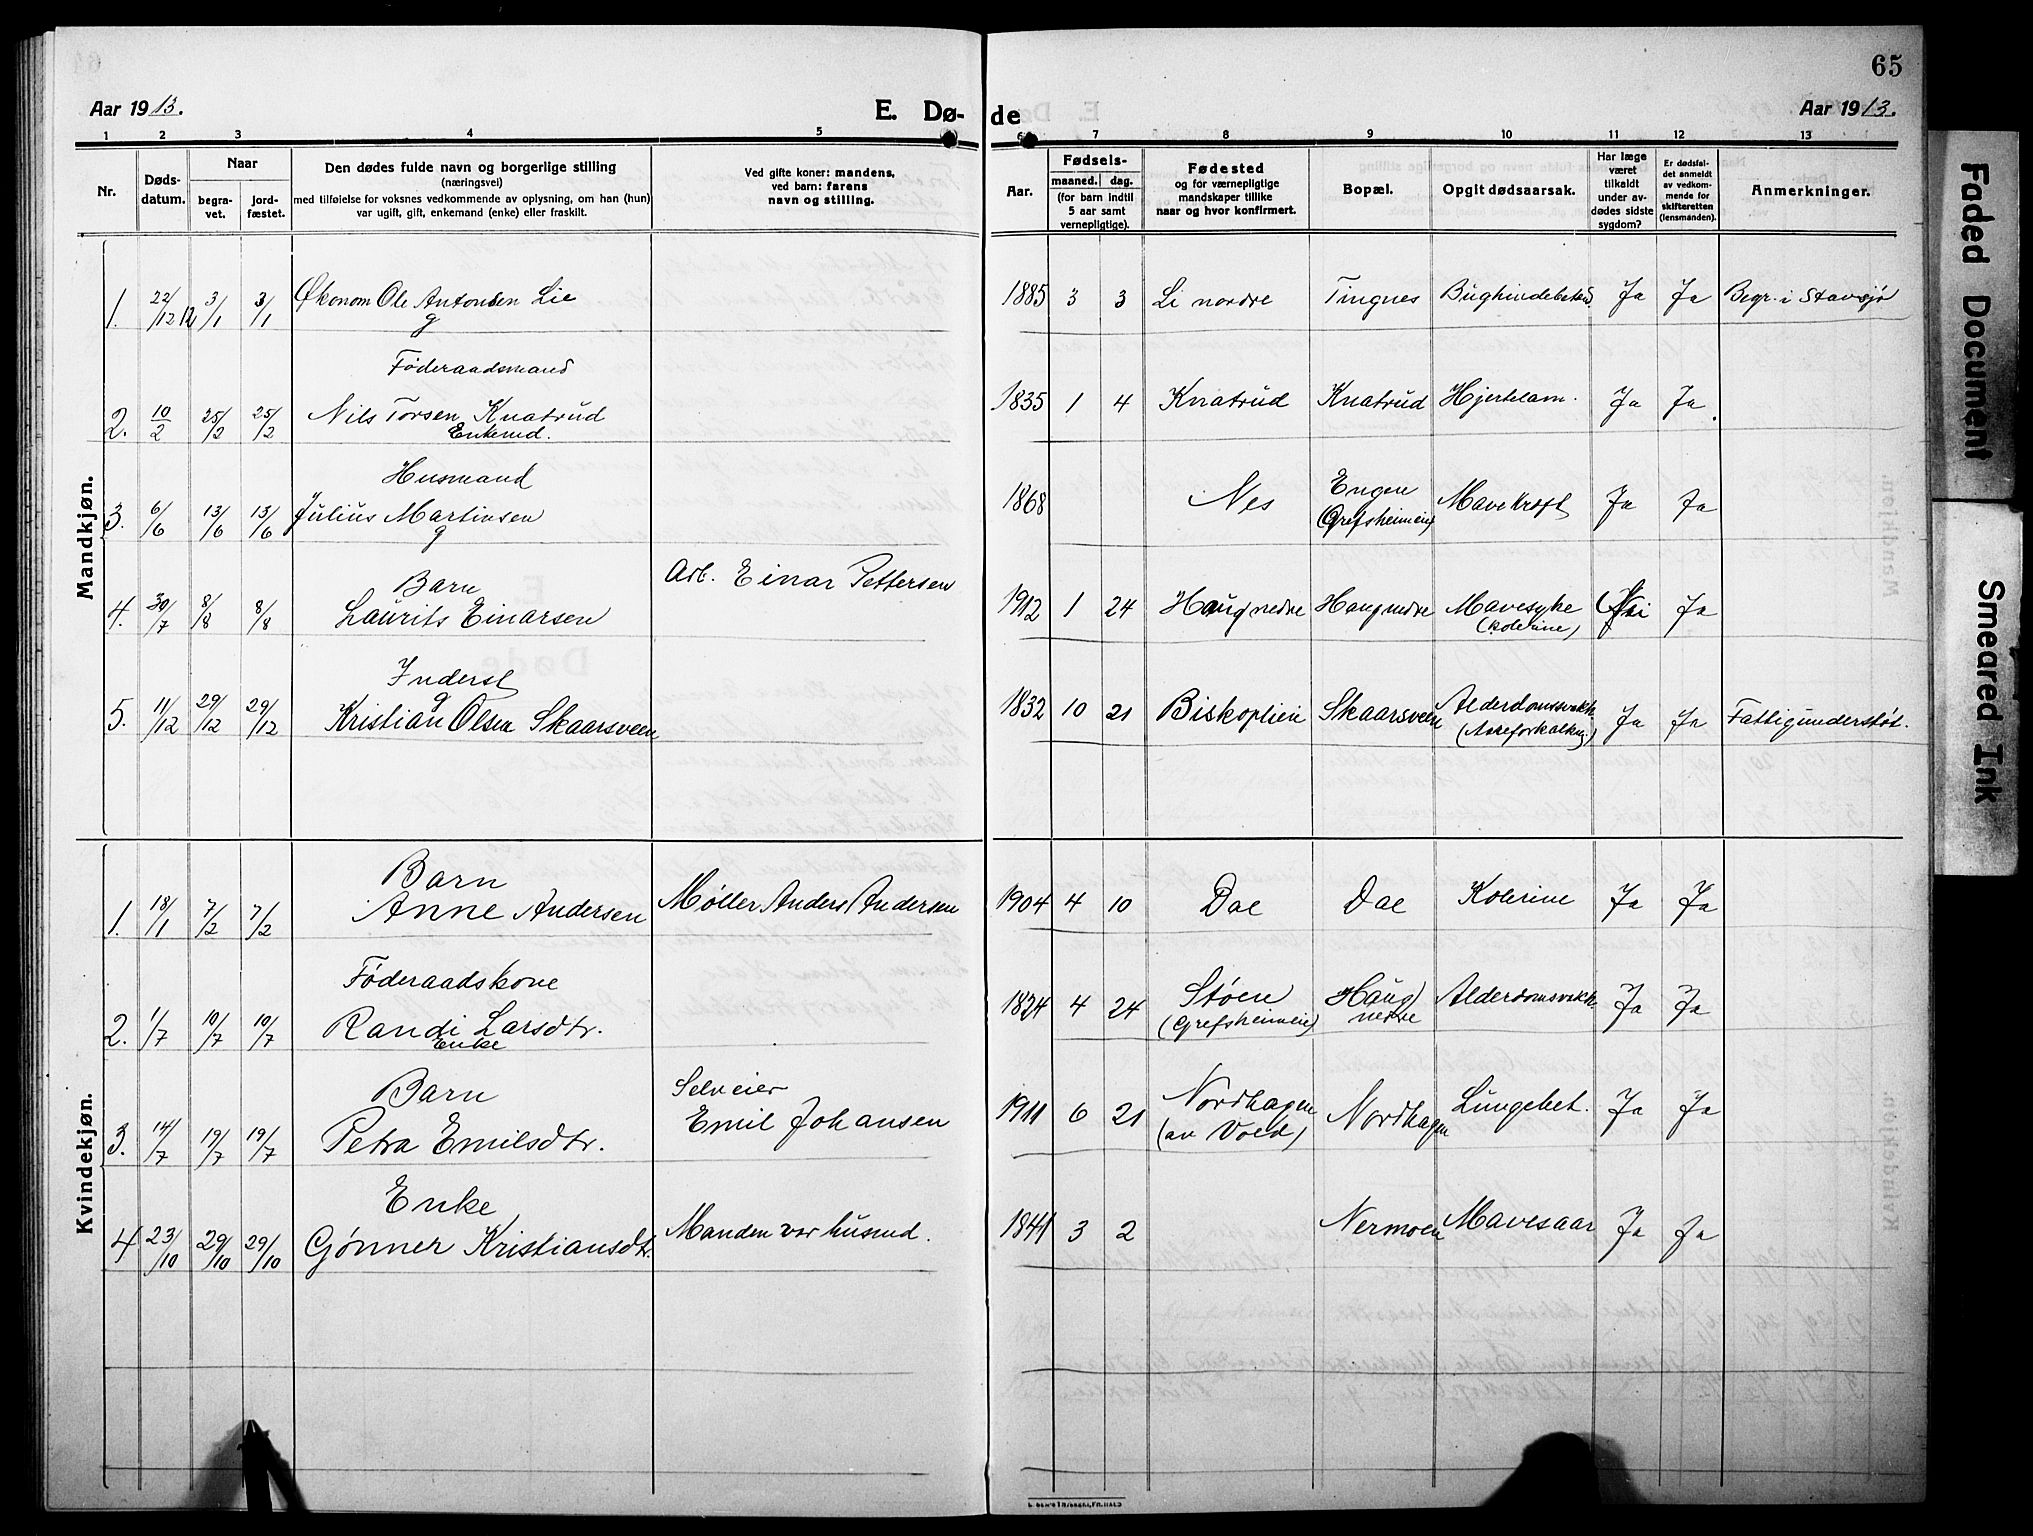 65
Aar 1913.
E. Dø-
de
Aar 1913.
1 2 3 4 5
6 7 8 9 10 11 12 13
Nr.
Døds-
datum.
Naar
begra-
vet.
jord-
fæstet.
Den dødes fulde navn og borgerlige stilling
(næringsvei)
med tilføielse for voksnes vedkommende av oplysning, om han (hun)
var ugift, gift, enkemand (enke) eller fraskilt.
Ved gifte koner: mandens,
ved barn: farens
navn og stilling.
Aar.
Fødsels-
maaned. dag.
(for barn indtil
5 aar samt
vernepligtige).
Fødested
og for værnepligtige
mandskaper tillike
naar og hvor konfirmert.
Bopæl.
Opgit dødsaarsak.
Har læge
været
tilkaldt
under av-
dødes sidste
sygdom?
Er dødsfal-
det anmeldt
av vedkom-
mende for
skifteretten
(lensmanden).
Anmerkninger.
Mandkjøn.
1. 22/12 12 3/1 3/1 Økonom Ole Antonsen Lie
g
1885 3 3 Li nordre Tingnes Bughindebeten. Ja Ja Begr. i Stavsjø
Føderaadsmand
2. 10/2 25/2 25/2 Nils Torsen Knatrud
Enkemd.
1835 1 4 Knatrud Knatrud Hjertelam. Ja Ja.
Husmand
3. 6/6 13/6 13/6 Julius Martinsen
g
1868 Nes Engen
(Grefsheimeie) Mavekræft Ja Ja
Barn
4. 30/7 8/8 8/8 Laurits Einarsen
Arb. Einar Pettersen
1912 1 24 Haug nedre Haug nedre Mavesyke
(kolerine) Nei Ja
Inderst
g
5. 11/12 29/12 29/12 Kristian Olsen Skaarsveen
1832 10 21 Biskoplien Skaarsveen Alderdomssvekk.
(Aareforkalkng.) Ja Ja Fattigunderstøt.
Kvindekjøn.
Barn
1. 18/1 7/2 7/2 Anne Andersen
Møller Anders Andersen
1904 4 10 Dæ Dæ Kolerine Ja Ja
Føderaadskone
2. 1/7 10/7 10/7 Randi Larsdtr.
Enke
1824 4 24 Støen
(Grefsheimeie) Haug
nedre Alderdomsvekk. Ja Ja
Barn
3. 14/7 19/7 19/7 Petra Emilsdtr.
Selveier
Emil Johansen
1911 6 21 Nordhagen
(av Vold) Nordhagen Lungebet. Ja Ja
Enke
4 23/10 29/10 29/10 Gønner Kristiansdtr.
Manden var husmd.
1841 3 2 Nermoen Mavesaar Ja Ja
Faded Document
Smeared Ink